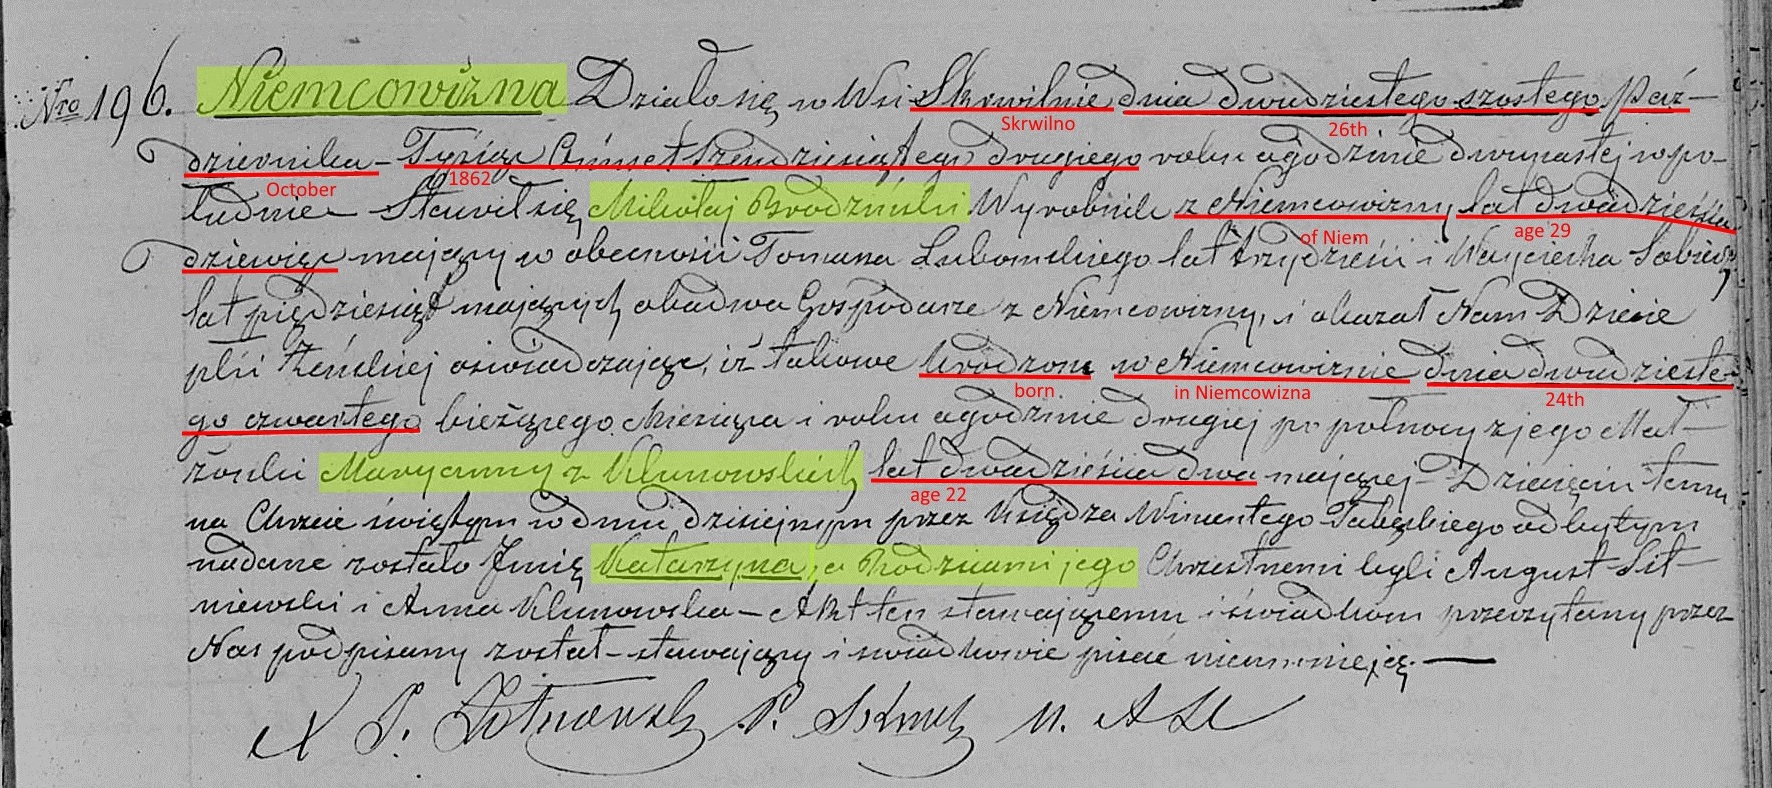 Nro 196. Niemcowizna Działo się w Wsi Skrwilnie dnia dwudziestego szostego Paź-
Skrwilno 26th
dziernika – Tysiąc Ośmset Szesdziesiątego drugiego roku o godzinie dwunastej w po-
October 1862
łudnie – Stawił się Mikołaj Brodziński Wyrobnik z Niemcowizny lat dwadzieścia
of Niem age 29
dziewięc mający w obecności Tomasza Lubomskiego lat trzydzieści i Wojciecha
lat pięćdziesiąt mających obadwa Gospodarze z Niemcowizny, i okazał Nam Dziecie
płci Żeńskiej oświadczając, iż takowe Urodzone w Niemcowiznie dnia dwudzieste-
born in Niemcowizna 24th
go czwartego bieżącego Miesiąca i roku o godzinie drugiej po połnocy z jego Mał-
żonki Maryanny z Klunowskich lat dwadzieścia dwa mającej – Dziecięciu temu
age 22
na Chrzcie świętym w dniu dzisiejszym przez Księdza Wincentego odbytym
nadane zostało Jmię Katarzyna, a Rodzicami jego Chrzestnemi byli August Sit-
niewski i Anna Klunowska – Akt ten stawającemu i świadkom przeczytany przez
Nas podpisany został – stawający i świadkowie pisać nieumieją. —
X P.